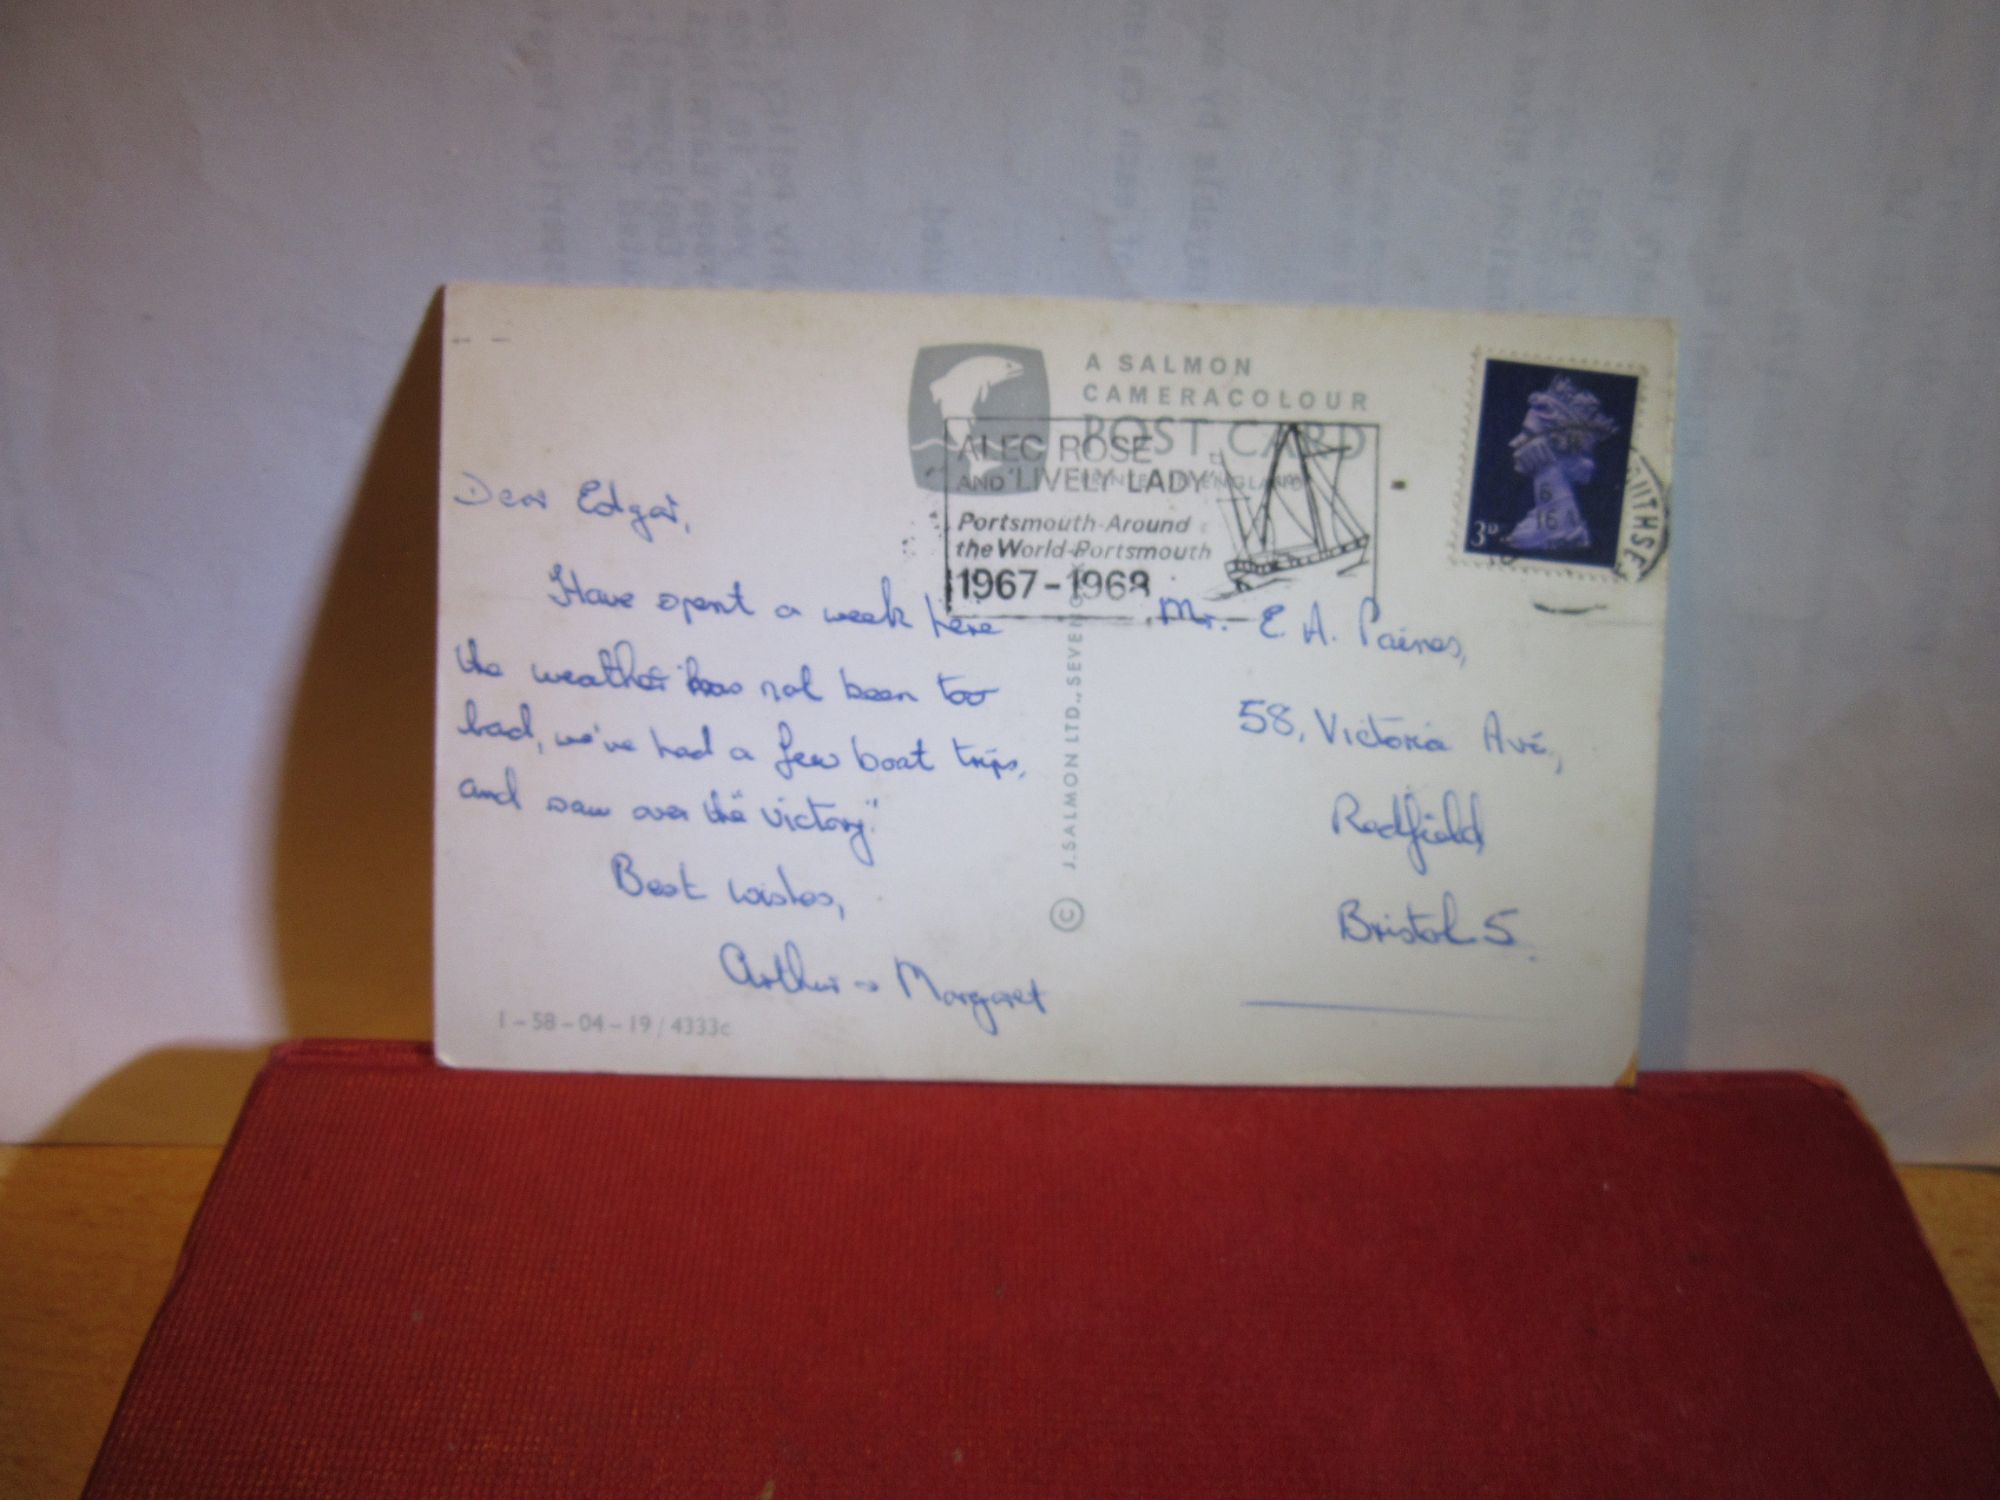 A SALMON
CAMERACOLOUR
POST CARD
ALEC ROSE
AND 'LIVELY LADY'
Portsmouth-Around
the World-Portsmouth
1967-1968
3D
Dear Edgar,
Have spent a week here
the weather has not been too
bad, we've had a few boat trips,
and saw over the "Victory."
Best wishes,
Arthur & Margaret
1-58-04-19/4333c
© J. SALMON LTD., SEVENOAKS
Mr. E. A. Paines,
58, Victoria Ave,
Redfield
Bristol 5.